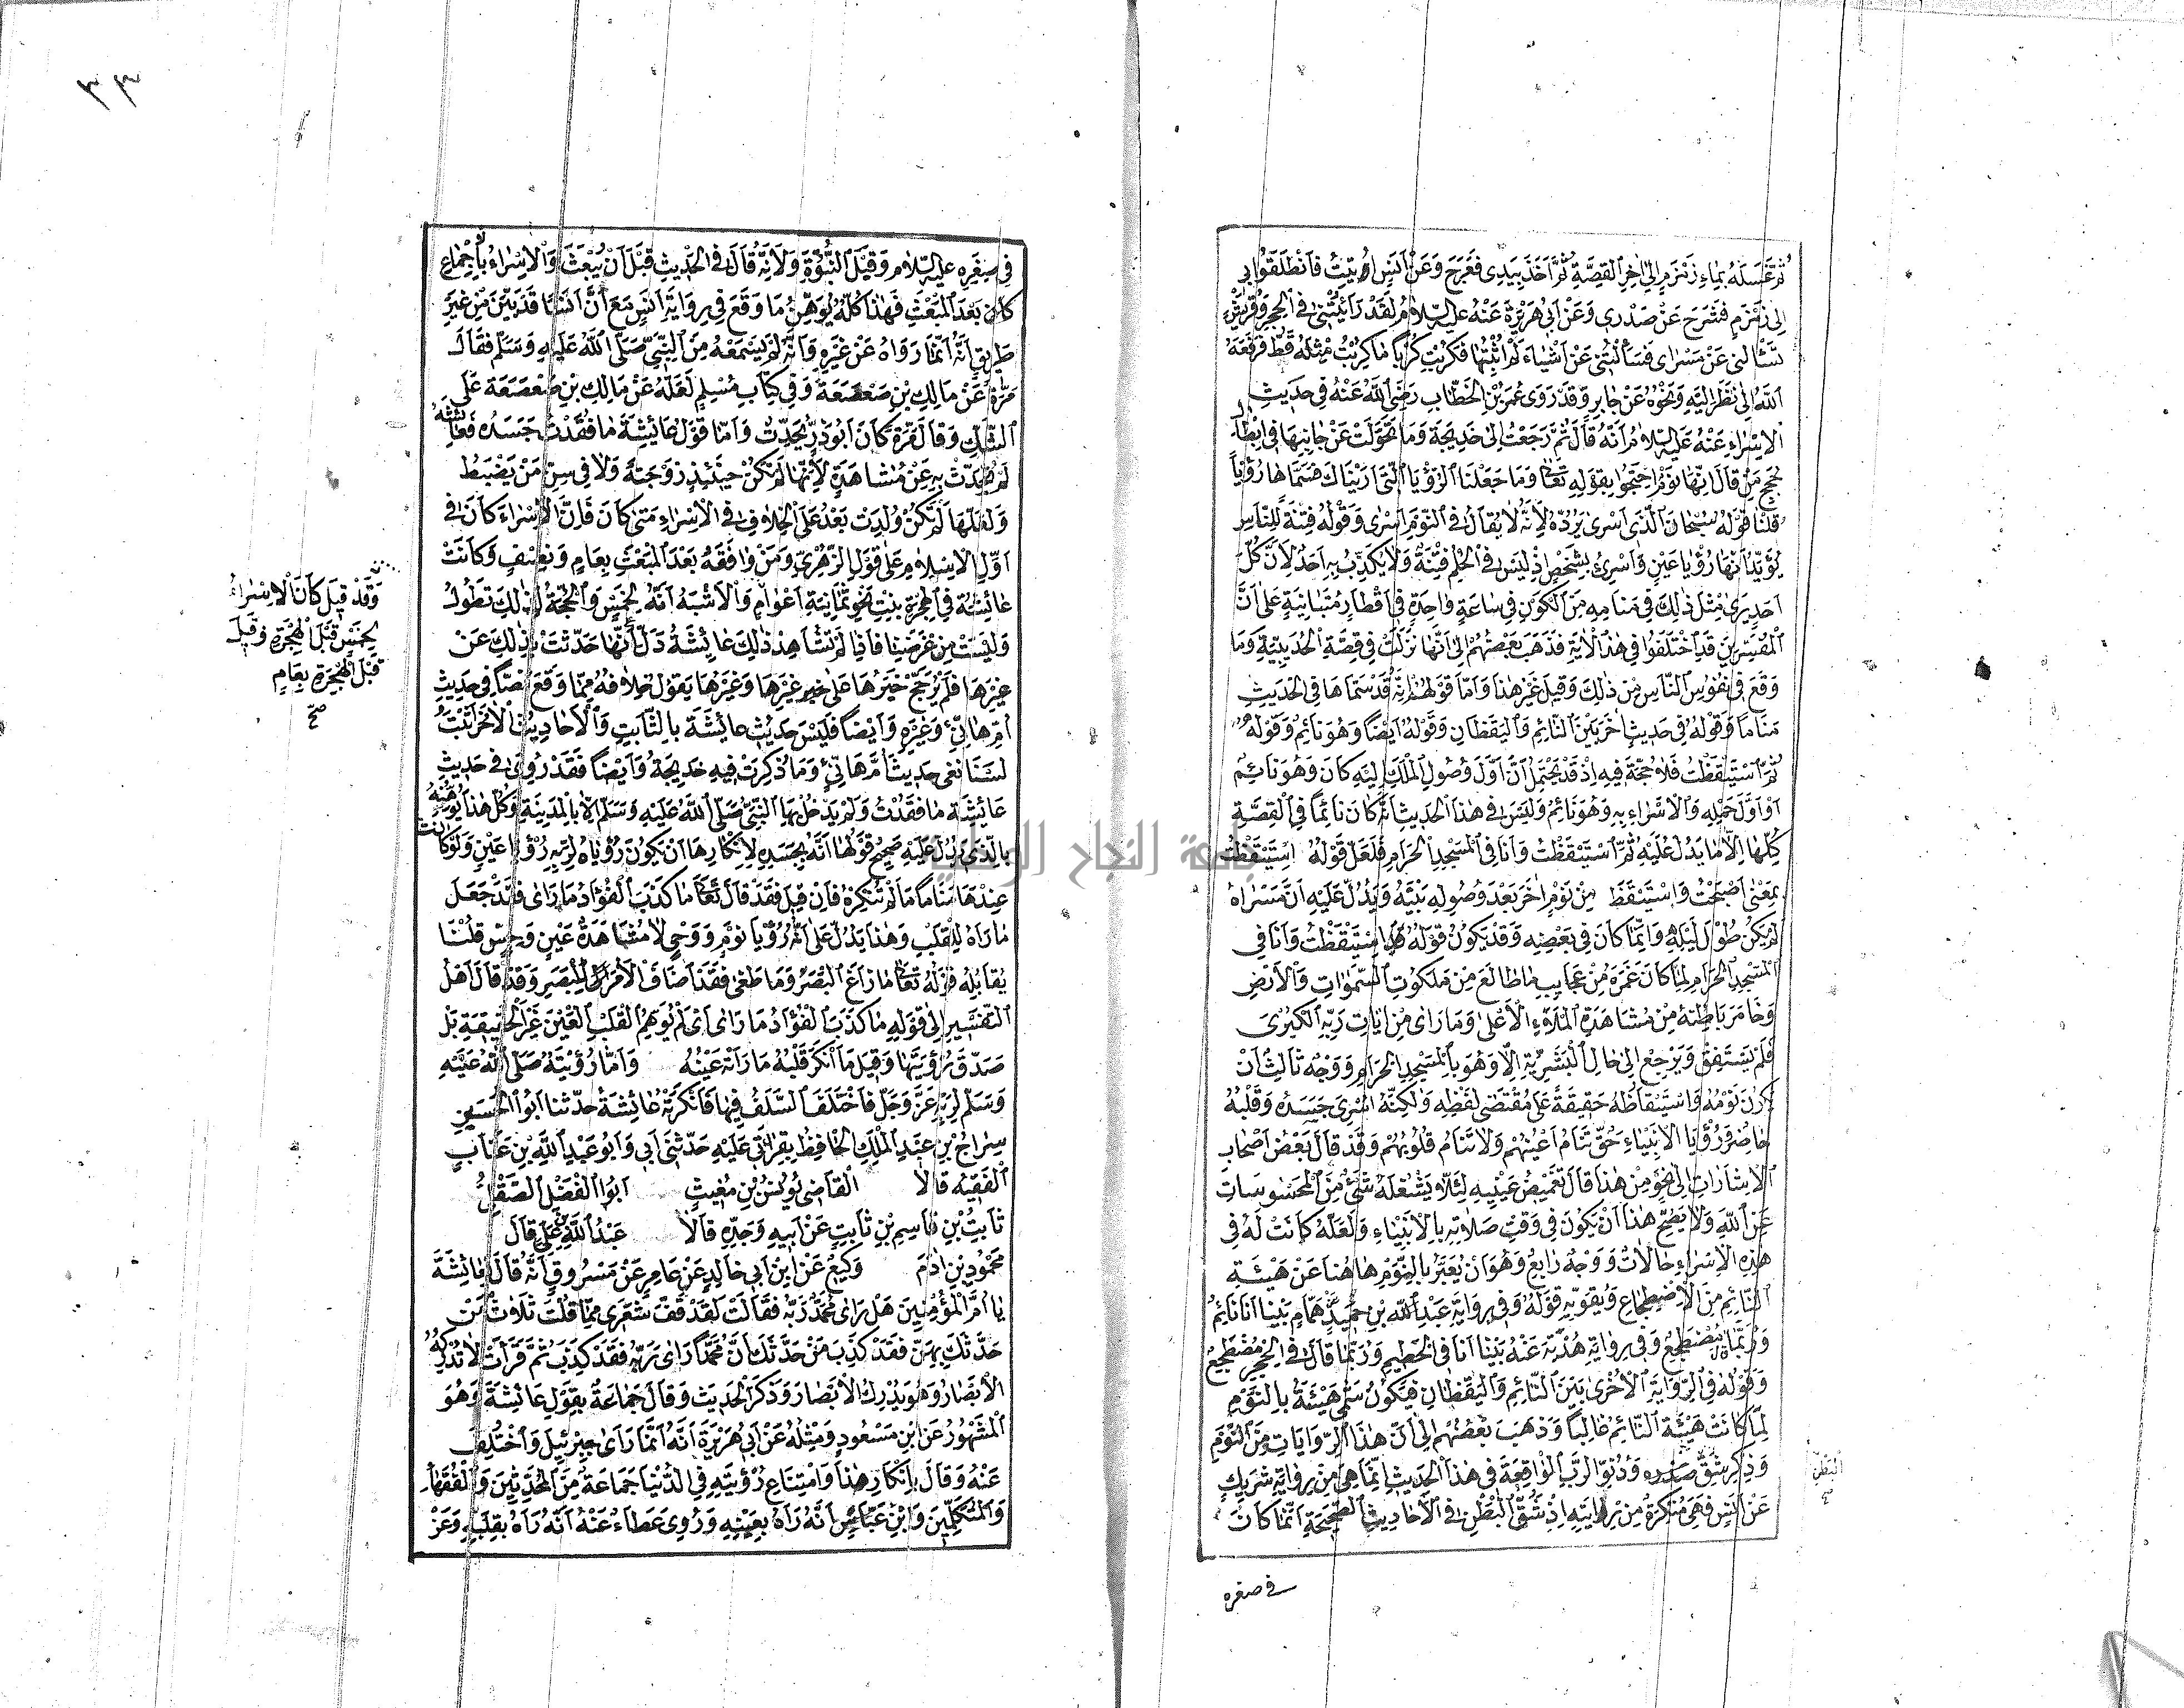 ثُمَّ غَسَلَهُ بِمَاءِ زَمْزَمَ إِلَى اٰخِرِ الْقِصَّةِ ثُمَّ اَخَذَ بِيَدِي فَعَرَجَ وَعَنْ اَنَسٍ اُتِيتُ فَانْطَلَقُوا بِي
اِلٰى زَمْزَمَ فَشُرِحَ عَنْ صَدْرِي وَعَنْ اَبِي هُرَيْرَةَ عَنْهُ عَلَيْهِ السَّلَامُ لَقَدْ رَاَيْتُنِي فِي الْحِجْرِ وَقُرَيْشٌ
تَسْاَلُنِي عَنْ مَسْرَايَ فَسَاَلَتْنِي عَنْ اَشْيَاءَ لَمْ اُثْبِتْهَا فَكُرِبْتُ كَرْبًا مَا كُرِبْتُ مِثْلَهُ قَطُّ فَرَفَعَهُ
اللّٰهُ لِي نَظَرُ اِلَيْهِ وَنَحْوُهُ عَنْ جَابِرٍ وَقَدْ رَوَى عُمَرُ بْنُ الْخَطَّابِ رَضِيَ اللّٰهُ عَنْهُ فِي حَدِيثِ
الْاِسْرَاءِ عَنْهُ عَلَيْهِ السَّلَامُ اَنَّهُ قَالَ ثُمَّ رَجَعْتُ اِلٰى خَدِيجَةَ وَمَا تَحَوَّلَتْ عَنْ جَانِبِهَا فِي اِبْطَالِ
حُجَجِ مَنْ قَالَ اِنَّهَا نَوْمٌ احْتَجُّوا بِقَوْلِهِ تَعَالٰى وَمَا جَعَلْنَا الرُّؤْيَا الَّتِي اَرَيْنَاكَ فَسَمَّاهَا رُؤْيَا
قُلْنَا قَوْلُهُ سُبْحَانَ الَّذِي اَسْرٰى يَرُدُّهُ لِاَنَّهُ لَا يُقَالُ فِي النَّوْمِ اَسْرٰى وَقَوْلُهُ فِتْنَةً لِلنَّاسِ
يُؤَيِّدُ اَنَّهَا رُؤْيَا عَيْنٍ وَاَسْرٰى بِشَخْصٍ اِذْ لَيْسَ فِي الْحُلْمِ فِتْنَةٌ وَلَا يُكَذِّبُ بِهِ اَحَدٌ لِاَنَّ كُلَّ
اَحَدٍ يَرٰى مِثْلَ ذٰلِكَ فِي مَنَامِهِ مِنَ الْكَوْنِ فِي سَاعَةٍ وَاحِدَةٍ فِي اَقْطَارٍ مُتَبَايِنَةٍ عَلٰى اَنَّ
الْمُفَسِّرِينَ قَدِ اخْتَلَفُوا فِي هٰذِهِ الْاٰيَةِ فَذَهَبَ بَعْضُهُمْ اِلٰى اَنَّهَا نَزَلَتْ فِي قِصَّةِ الْحُدَيْبِيَةِ وَمَا
وَقَعَ فِي نُفُوسِ النَّاسِ مِنْ ذٰلِكَ وَقِيلَ غَيْرُ هٰذَا وَاَمَّا قَوْلُهُمْ اِنَّهُ قَدْ سَمَّاهَا فِي الْحَدِيثِ
مَنَامًا وَقَوْلُهُ فِي حَدِيثٍ اٰخَرَ بَيْنَ النَّائِمِ وَالْيَقْظَانِ وَقَوْلُهُ اَيْضًا وَهُوَ نَائِمٌ وَقَوْلُهُ
ثُمَّ اسْتَيْقَظْتُ فَلَا حُجَّةَ فِيهِ اِذْ قَدْ يَحْتَمِلُ اَنَّ اَوَّلَ وُصُولِ الْمَلَكِ اِلَيْهِ كَانَ وَهُوَ نَائِمٌ
اَوْ اَوَّلَ حَمْلِهِ وَالْاِسْرَاءِ بِهِ وَهُوَ نَائِمٌ وَلَيْسَ فِي هٰذَا الْحَدِيثِ اَنَّهُ كَانَ نَائِمًا فِي الْقِصَّةِ
كُلِّهَا اِلَّا مَا يَدُلُّ عَلَيْهِ ثُمَّ اسْتَيْقَظْتُ وَاَنَا فِي الْمَسْجِدِ الْحَرَامِ فَلَعَلَّ قَوْلَهُ اسْتَيْقَظْتُ
بِمَعْنٰى اَصْبَحْتُ وَاسْتَيْقَظَ مِنْ نَوْمٍ اٰخَرَ بَعْدَ وُصُولِهِ بَيْتَهُ وَيَدُلُّ عَلَيْهِ اَنَّ مَسْرَاهُ
لَمْ يَكُنْ طُولَ لَيْلِهِ وَاِنَّمَا كَانَ فِي بَعْضِهِ وَقَدْ يَكُونُ قَوْلُهُ اسْتَيْقَظْتُ وَاَنَا فِي
الْمَسْجِدِ الْحَرَامِ لِمَا كَانَ غَمَرَهُ مِنْ عَجَايِبِ مَا طَالَعَ مِنْ مَلَكُوتِ السَّمٰوَاتِ وَالْاَرْضِ
وَخَامَرَ بَاطِنَهُ مِنْ مُشَاهَدَةِ الْمَلَاءِ الْاَعْلٰى وَمَا رَاٰى مِنْ اٰيَاتِ رَبِّهِ الْكُبْرٰى
فَلَمْ يَسْتَفِقْ وَيَرْجِعْ اِلٰى حَالِ الْبَشَرِيَّةِ اِلَّا وَهُوَ بِالْمَسْجِدِ الْحَرَامِ وَوَجْهٌ ثَالِثٌ اَنْ
يَكُونَ نَوْمُهُ وَاسْتِيقَاظُهُ حَقِيقَةً عَلٰى مُقْتَضٰى لَفْظِهِ وَلٰكِنَّهُ اُسْرِيَ جَسَدُهُ وَقَلْبُهُ
حَاضِرٌ وَرُؤْيَا الْاَنْبِيَاءِ حَقٌّ تَنَامُ اَعْيُنُهُمْ وَلَا تَنَامُ قُلُوبُهُمْ وَقَدْ قَالَ بَعْضُ اَصْحَابِ
الْاِشَارَاتِ اِلٰى نَحْوٍ مِنْ هٰذَا قَالَ تَغْمِيضُ عَيْنَيْهِ لِئَلَّا يَشْغَلَهُ شَيْءٌ مِنَ الْمَحْسُوسَاتِ
عَنِ اللّٰهِ وَلَا يَصِحُّ هٰذَا اَنْ يَكُونَ فِي وَقْتِ صَلَاتِهِ بِالْاَنْبِيَاءِ وَلَعَلَّهُ كَانَتْ لَهُ فِي
هٰذِهِ الْاِسْرَاءِ حَالَاتٌ وَوَجْهٌ رَابِعٌ وَهُوَ اَنْ يُعَبَّرَ بِالنَّوْمِ هَاهُنَا عَنْ هَيْئَةِ
النَّائِمِ مِنَ الْاِضْطِجَاعِ وَيُقَوِّيهِ قَوْلُهُ وَفِي رِوَايَةِ عَبْدِ اللّٰهِ بْنِ حُمَيْدٍ هَمَّامٍ بَيْنَا اَنَا نَائِمٌ
وَرُبَّمَا قَالَ مُضْطَجِعٌ وَفِي رِوَايَةِ هُدْبَةَ عَنْهُ بَيْنَا اَنَا فِي الْحَطِيمِ وَرُبَّمَا قَالَ فِي الْحِجْرِ مُضْطَجِعٌ
وَقَوْلُهُ فِي الرِّوَايَةِ الْاُخْرٰى بَيْنَ النَّائِمِ وَالْيَقْظَانِ فَيَكُونُ سَمَّى هَيْئَتَهُ بِالنَّوْمِ
لِمَّا كَانَتْ هَيْئَةَ النَّائِمِ غَالِبًا وَذَهَبَ بَعْضُهُمْ اِلٰى اَنَّ هٰذِهِ الرِّوَايَاتِ مِنَ النَّوْمِ
وَذِكْرِ شَقِّ صَدْرِهِ وَدُنُوِّ الرَّبِّ الْوَاقِعَةِ فِي هٰذَا الْحَدِيثِ اِنَّمَا هِيَ مِنْ رِوَايَةِ شَرِيكٍ
عَنْ اَنَسٍ فَهِيَ مُنْكَرَةٌ مِنْ رِوَايَتِهِ اِذْ شَقُّ الْبَطْنِ فِي الْاَحَادِيثِ الصَّحِيحَةِ اِنَّمَا كَانَ
الْبَطْنِ
صح
في صغره
٣٣
فِي صِغَرِهِ عَلَيْهِ السَّلَامُ وَقَبْلَ النُّبُوَّةِ وَلِاَنَّهُ قَالَ فِي الْحَدِيثِ قَبْلَ اَنْ يُبْعَثَ وَالْاِسْرَاءُ بِاِجْمَاعٍ
كَانَ بَعْدَ الْمَبْعَثِ فَهٰذَا كُلُّهُ يُوَهِّنُ مَا وَقَعَ فِي رِوَايَةِ اَنَسٍ مَعَ اَنَّ اَنَسًا قَدْ بَيَّنَ مِنْ غَيْرِ
طَرِيقٍ اَنَّهُ اِنَّمَا رَوَاهُ عَنْ غَيْرِهِ وَاَنَّهُ لَمْ يَسْمَعْهُ مِنَ النَّبِيِّ صَلَّى اللّٰهُ عَلَيْهِ وَسَلَّمَ فَقَالَ
مَرَّةً عَنْ مَالِكِ بْنِ صَعْصَعَةَ وَفِي كِتَابِ مُسْلِمٍ لَعَلَّهُ عَنْ مَالِكِ بْنِ صَعْصَعَةَ عَلَى
الشَّكِّ وَقَالَ مَرَّةً كَانَ اَبُو ذَرٍّ يُحَدِّثُ وَاَمَّا قَوْلُ عَائِشَةَ مَا فَقَدْتُ جَسَدَهُ فَعَائِشَةُ
لَمْ تُحَدِّثْ بِهِ عَنْ مُشَاهَدَةٍ لِاَنَّهَا لَمْ تَكُنْ حِينَئِذٍ زَوْجَتَهُ وَلَا فِي سِنِّ مَنْ يَضْبِطُ
وَلَعَلَّهَا لَمْ تَكُنْ وُلِدَتْ بَعْدُ عَلَى الْخِلَافِ فِي الْاِسْرَاءِ مَتٰى كَانَ فَاِنَّ الْاِسْرَاءَ كَانَ فِي
اَوَّلِ الْاِسْلَامِ عَلٰى قَوْلِ الزُّهْرِيِّ وَمَنْ وَافَقَهُ بَعْدَ الْمَبْعَثِ بِعَامٍ وَنِصْفٍ وَكَانَتْ
عَائِشَةُ فِي الْهِجْرَةِ بِنْتَ نَحْوِ ثَمَانِيَةِ اَعْوَامٍ وَالْاَشْبَهُ اَنَّهُ لِخَمْسٍ وَالْحُجَّةُ لِذٰلِكَ تَطُولُ
وَلَيْسَتْ مِنْ غَرَضِنَا فَاِذَا لَمْ تُشَاهِدْ ذٰلِكَ عَائِشَةُ دَلَّ اَنَّهَا حَدَّثَتْ بِذٰلِكَ عَنْ
غَيْرِهَا فَلَمْ يُرَجَّحْ خَبَرُهَا عَلٰى خَبَرِ غَيْرِهَا وَغَيْرُهَا يَقُولُ خِلَافَهُ مِمَّا وَقَعَ نَصًّا فِي حَدِيثِ
اُمِّ هَانِئٍ وَغَيْرِهِ وَاَيْضًا فَلَيْسَ حَدِيثُ عَائِشَةَ بِالثَّابِتِ وَالْاَحَادِيثُ الْاُخَرُ اَثْبَتُ
لَسْنَا نَعْنِي حَدِيثَ اُمِّ هَانِئٍ وَمَا ذُكِرَتْ فِيهِ خَدِيجَةُ وَاَيْضًا فَقَدْ رُوِيَ فِي حَدِيثِ
عَائِشَةَ مَا فَقَدْتُ وَلَمْ يَدْخُلْ بِهَا النَّبِيُّ صَلَّى اللّٰهُ عَلَيْهِ وَسَلَّمَ اِلَّا بِالْمَدِينَةِ وَكُلُّ هٰذَا يُوَهِّنُهُ
بَلِ الَّذِي يَدُلُّ عَلَيْهِ صَحِيحُ قَوْلِهَا اَنَّهُ بِجَسَدِهِ لِاِنْكَارِهَا اَنْ يَكُونَ رُؤْيَاهُ لِرَبِّهِ رُؤْيَا عَيْنٍ وَلَوْ كَانَتْ
عِنْدَهَا مَنَامًا مَا لَمْ تُنْكِرْهُ فَاِنْ قِيلَ فَقَدْ قَالَ تَعَالٰى مَا كَذَبَ الْفُؤَادُ مَا رَاٰى فَقَدْ جَعَلَ
مَا رَاٰهُ لِلْقَلْبِ وَهٰذَا يَدُلُّ عَلٰى اَنَّهُ رُؤْيَا نَوْمٍ وَوَحْيٍ لَا مُشَاهَدَةُ عَيْنٍ وَحِسٍّ قُلْنَا
يُقَابِلُهُ قَوْلُهُ تَعَالٰى مَا زَاغَ الْبَصَرُ وَمَا طَغٰى فَقَدْ اَضَافَ الْاَمْرَ لِلْبَصَرِ وَقَدْ قَالَ اَهْلُ
التَّفْسِيرِ اِلٰى قَوْلِهِ مَا كَذَبَ الْفُؤَادُ مَا رَاٰى اَيْ لَمْ يُوهِمِ الْقَلْبُ الْعَيْنَ غَيْرَ الْحَقِيقَةِ بَلْ
صَدَّقَ رُؤْيَتَهَا وَقِيلَ مَا اَنْكَرَ قَلْبُهُ مَا رَاَتْهُ عَيْنُهُ وَاَمَّا رُؤْيَتُهُ صَلَّى اللّٰهُ عَلَيْهِ
وَسَلَّمَ لِرَبِّهِ عَزَّ وَجَلَّ فَاخْتَلَفَ السَّلَفُ فِيهَا فَاَنْكَرَتْهُ عَائِشَةُ حَدَّثَنَا اَبُو الْحُسَيْنِ
سِرَاجُ بْنُ عَبْدِ الْمَلِكِ الْحَافِظُ بِقِرَائَتِي عَلَيْهِ حَدَّثَنِي اَبِي وَاَبُو عَبْدِ اللّٰهِ بْنُ عَتَّابٍ
الْفَقِيهُ قَالَا الْقَاضِي يُونُسُ بْنُ مُغِيثٍ اَبُو الْفَضْلِ الصَّقْلِيُّ
ثَابِتُ بْنُ قَاسِمِ بْنِ ثَابِتٍ عَنْ اَبِيهِ وَجَدِّهِ قَالَا عَبْدُ اللّٰهِ بْنُ عَلِيٍّ قَالَ
مَحْمُودُ بْنُ اٰدَمَ وَكِيعٌ عَنِ ابْنِ اَبِي خَالِدٍ عَنْ عَامِرٍ عَنْ مَسْرُوقٍ اَنَّهُ قَالَ لِعَائِشَةَ
يَا اُمَّ الْمُؤْمِنِينَ هَلْ رَاٰى مُحَمَّدٌ رَبَّهُ فَقَالَتْ لَقَدْ قَفَّ شَعْرِي مِمَّا قُلْتَ ثَلَاثٌ مَنْ
حَدَّثَكَ بِهِنَّ فَقَدْ كَذَبَ مَنْ حَدَّثَكَ اَنَّ مُحَمَّدًا رَاٰى رَبَّهُ فَقَدْ كَذَبَ ثُمَّ قَرَاَتْ لَا تُدْرِكُهُ
الْاَبْصَارُ وَهُوَ يُدْرِكُ الْاَبْصَارَ وَذَكَرَ الْحَدِيثَ وَقَالَ جَمَاعَةٌ بِقَوْلِ عَائِشَةَ وَهُوَ
الْمَشْهُورُ عَنِ ابْنِ مَسْعُودٍ وَمِثْلُهُ عَنْ اَبِي هُرَيْرَةَ اَنَّهُ اِنَّمَا رَاٰى جِبْرِئِيلَ وَاخْتُلِفَ
عَنْهُ وَقَالَ بِاِنْكَارِ هٰذَا وَامْتِنَاعِ رُؤْيَتِهِ فِي الدُّنْيَا جَمَاعَةٌ مِنَ الْمُحَدِّثِينَ وَالْفُقَهَاءِ
وَالْمُتَكَلِّمِينَ وَابْنِ عَبَّاسٍ اَنَّهُ رَاٰهُ بِعَيْنِهِ وَرَوٰى عَطَاءٌ عَنْهُ اَنَّهُ رَاٰهُ بِقَلْبِهِ وَعَنْ
وَقَدْ قِيلَ كَانَ الْاِسْرَاءُ
لِخَمْسٍ قَبْلَ الْهِجْرَةِ وَقِيلَ
قَبْلَ الْهِجْرَةِ بِعَامٍ
صح
جامعة النجاح الوطنية